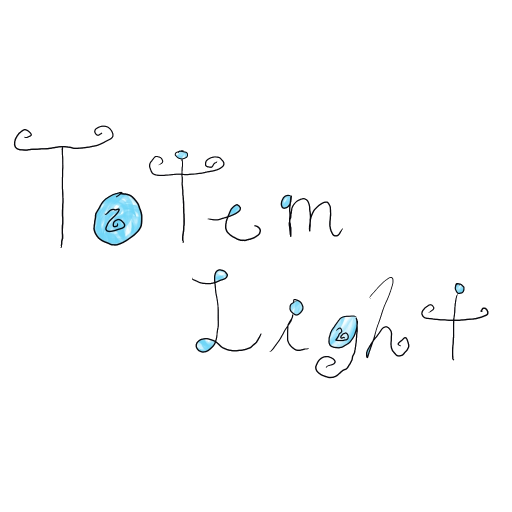 Totem
Light